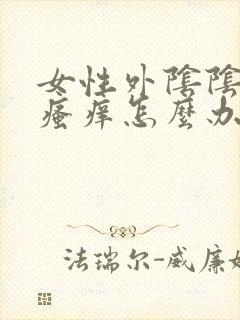 女性外陰陰
瘙痒怎麼办
法瑞尔-威廉